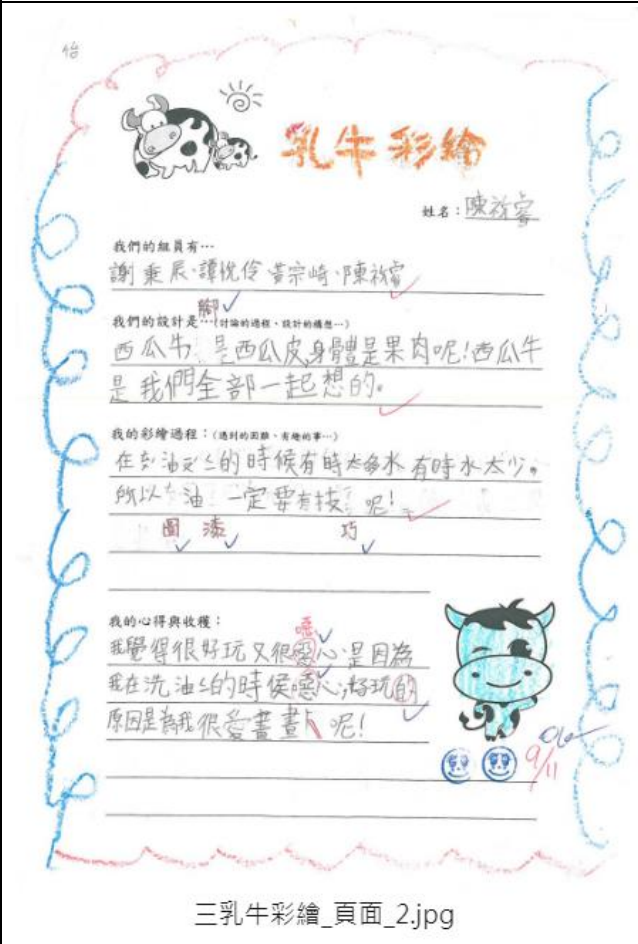 怡
乳牛彩繪
姓名：陳祤睿
我們的組員有…
謝秉辰、譚悅伶 黃宗崎、陳祤睿
腳
我們的設計是…(討論的過程、設計的構想…)
西瓜牛 是西瓜皮,身體是果肉呢!西瓜牛
是我們全部一起想的。
我的彩繪過程：(遇到的困難、有趣的事…)
在 油 的時候有時太多水 有時水太少。
所以 油 一定要有技 呢!
圖 漆 巧
我的心得與收穫：
噁
我覺得很好玩又很噁心,是因為
我在洗油 的時侯噁心,好玩的
原因是為我很愛畫畫 呢!
9/11
三乳牛彩繪_頁面_2.jpg